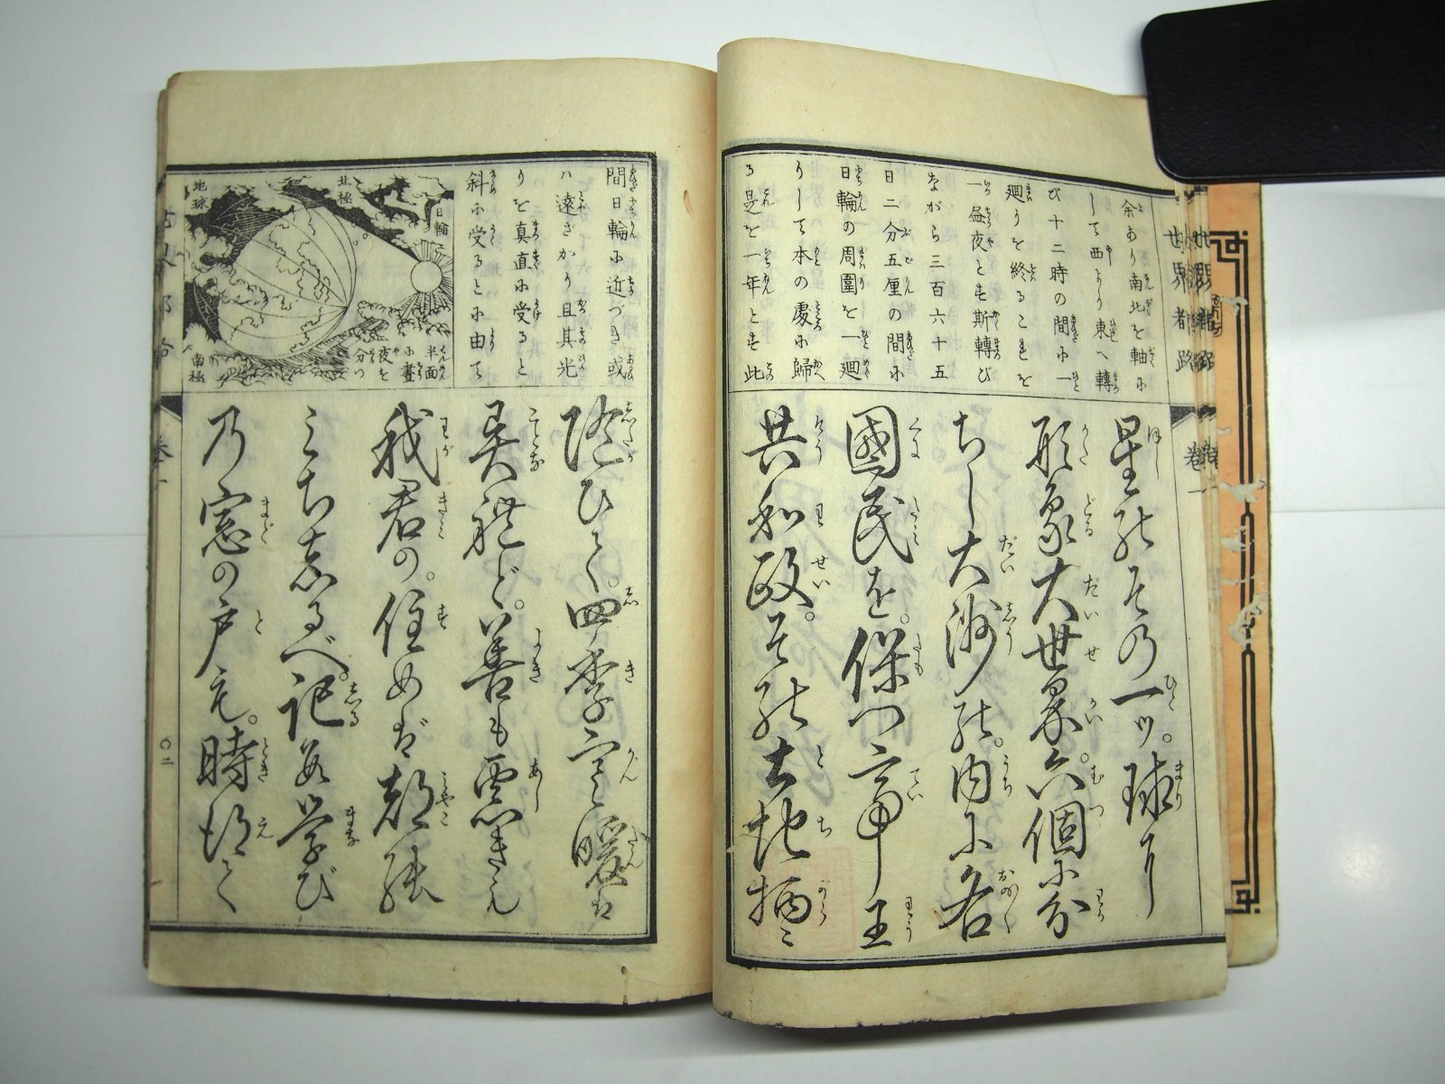 世界都路
卷一
余あり南北を軸に
して西より東へ轉
び十二時の間に一
廻りを終るこれを
一昼夜とす斯轉び
ながら三百六十五
日二分五厘の間に
日輪の周圍を一廻
りして本の處に歸
る是を一年とす此
星のその一ツ。球なり
形象大世界。六個に分
ちし大洲の。内に各
國民を。保つ言帝王
共和政。その土地柄に
間日輪に近づき或
ハ遠ざかり且其光
りを真直に受ると
斜に受るとに由て
北極
日輪
地球
南極
半面
に晝
夜を
分つ
隨ひて。四季寒暖は
異れど。善も悪きも
我君の。住めば都路
こち志るべ。記數学び
乃窓の戸も。時得て
〇二